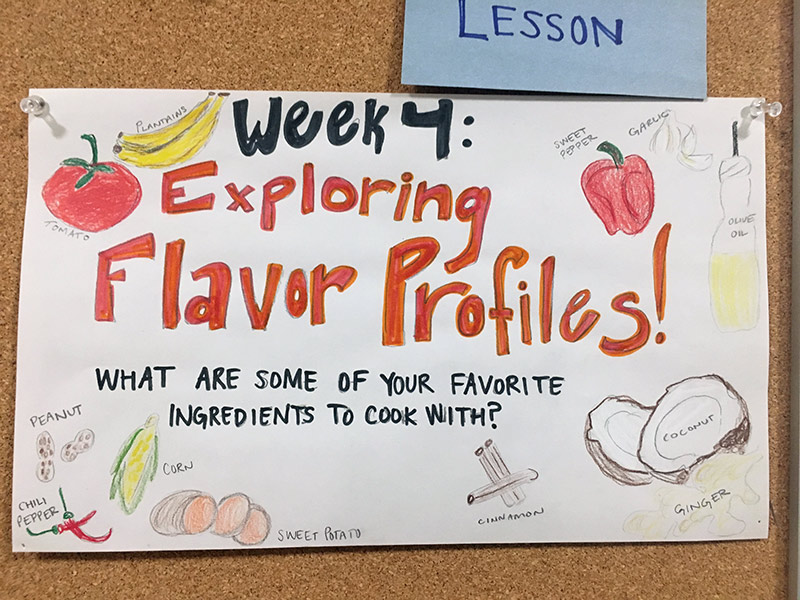 LESSON
PLANTAINS
WEEK 4:
SWEET
PEPPER
GARLIC
TOMATO
Exploring
OLIVE
OIL
Flavor Profiles!
WHAT ARE SOME OF YOUR FAVORITE
INGREDIENTS TO COOK WITH?
PEANUT
COCONUT
CORN
CHILI
PEPPER
GINGER
CINNAMON
SWEET POTATO